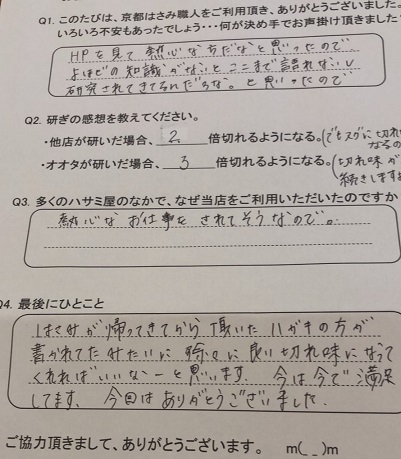 Q1. このたびは、京都はさみ職人をご利用頂き、ありがとうございました。
いろいろ不安もあったでしょう・・・何が決め手でお声掛け頂きました
HPを見て熱心な方だなと思ったので
よほどの知識がないとここまで語れないし
研究されてきてるんだろな。と思ったので
Q2. 研ぎの感想を教えてください。
・他店が研いだ場合、2 倍切れるようになる。(でもスグに切れ
なるの
・オオタが研いだ場合、3 倍切れるようになる。(切れ味が
続きします
Q3. 多くのハサミ屋のなかで、なぜ当店をご利用いただいたのですか
熱心なお仕事をされてそうなので。
Q4. 最後にひとこと
はさみが帰ってきてから頂いたハガキの方が
書かれてたみたいに徐々に良い切れ味になって
くれればいいなーと思います。今は今で満足
してます。今回はありがとうございました。
ご協力頂きまして、ありがとうございます。 m(_ _)m